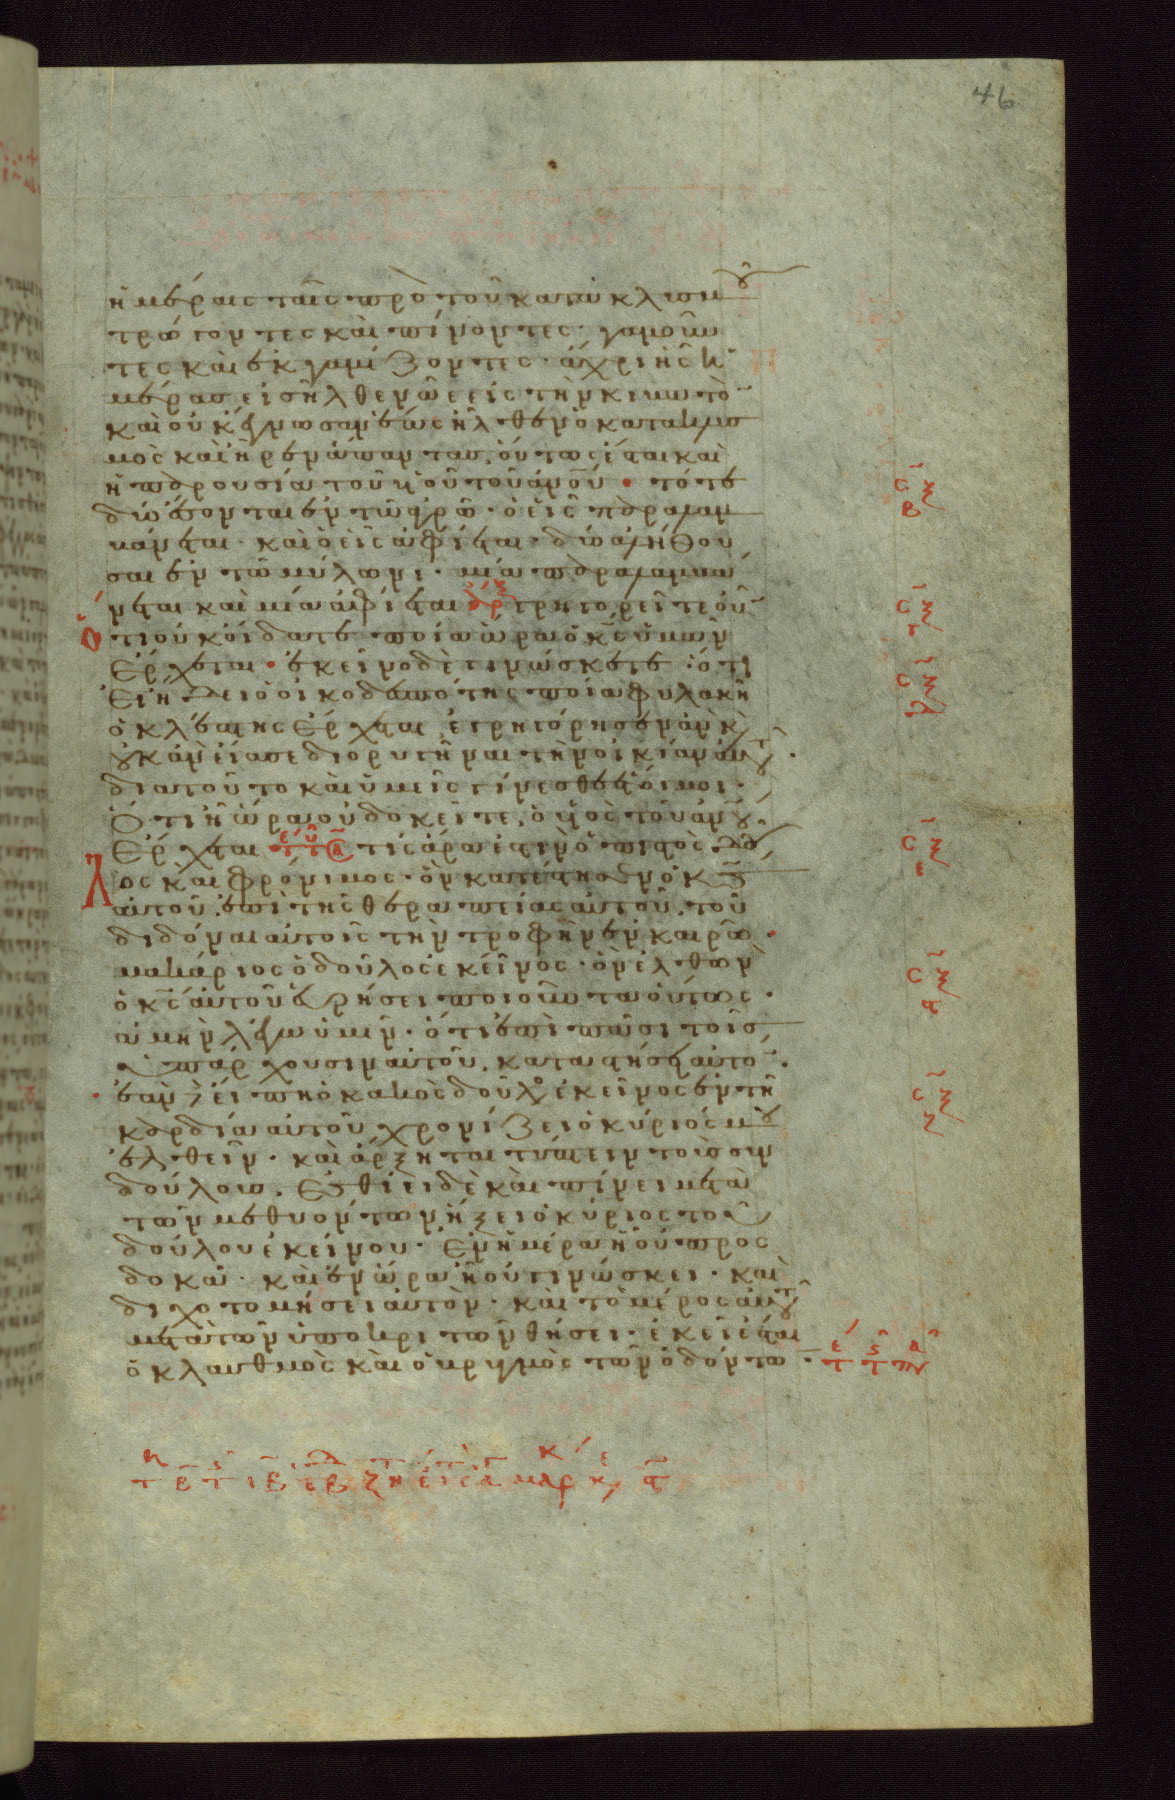 46
ἡμέραις ταῖς πρὸ τοῦ κατακλυσμοῦ
τρώγοντες καὶ πίνοντες · γαμοῦν
τες καὶ ἐκγαμίζοντες · ἄχρι ἧς ἡ
μέρας εἰσῆλθε νῶε εἰς τὴν κιβωτὸ
καὶ οὐκ ἔγνωσαν ἕως ἦλθεν ὁ κατακλυσ
μὸς καὶ ἦρεν ἅπαντας, οὕτως ἔσται καὶ
ἡ παρουσία τοῦ υἱοῦ τοῦ ἀνου · τότε
δύο ἔσονται ἐν τῶ ἀγρῶ · ὁ εἷς παραλαμ
βάνεται · καὶ ὁ εἷς ἀφίεται · δύο ἀλήθου
σαι ἐν τῶ μύλωνι · μία παραλαμβά
νεται καὶ μία ἀφίεται γρηγορεῖτε οὖν
ὅτι οὐκ οἴδατε ποία ὥρα ὁ κς ὑμῶν
ἔρχεται · ἐκεῖνο δὲ γινώσκετε · ὅτι
εἰ ἤδει ὁ οἰκοδεσπότης ποία φυλακῆ
ὁ κλέπτης ἔρχεται, ἐγρηγόρησεν ἂν κ
οὐκ ἂν εἴασε διορυγῆναι τὴν οἰκίαν αὐτοῦ ·
διατοῦτο καὶ ὑμεῖς γίνεσθε ἕτοιμοι ·
ὅτι ἧ ὥρα οὐ δοκεῖτε, ὁ υἱὸς τοῦ ἀνου
ἔρχεται τίς ἄρα ἐστὶν ὁ πιστὸς δοῦ
λος καὶ φρόνιμος · ὃν κατέστησεν ὁ κς
αὐτοῦ ἐπὶ τῆς θεραπείας αὐτοῦ, τοῦ
διδόναι αὐτοῖς τὴν τροφὴν ἐν καιρῶ ·
μακάριος ὁ δοῦλος ἐκεῖνος · ὃν ἐλθὼν
ὁ κς αὐτοῦ εὑρήσει ποιοῦντα οὕτως ·
ἀμὴν λέγω ὑμῖν · ὅτι ἐπὶ πᾶσι τοῖς
ὑπάρχουσιν αὐτοῦ, καταστήσει αὐτὸ ·
ἐὰν δὲ εἴπη ὁ κακὸς δοῦλος ἐκεῖνος ἐν τῆ
καρδία αὐτοῦ, χρονίζει ὁ κύριός μου
ἐλθεῖν · καὶ ἄρξηται τύπτειν τοὺς συν
δούλους, ἐσθίει δὲ καὶ πίνει μετὰ
τῶν μεθυόντων, ἥξει ὁ κύριος τοῦ
δούλου ἐκείνου · ἐν ἡμέρα ἧ οὐ προς
δοκᾶ · καὶ ἐν ὥρα ἧ οὐ γινώσκει · καὶ
διχοτομήσει αὐτὸν · καὶ τὸ μέρος αὐτοῦ
μετὰ τῶν ὑποκριτῶν θήσει · ἐκεῖ ἔσται
ὁ κλαυθμὸς καὶ ὁ βρυγμὸς τῶν ὀδόντω